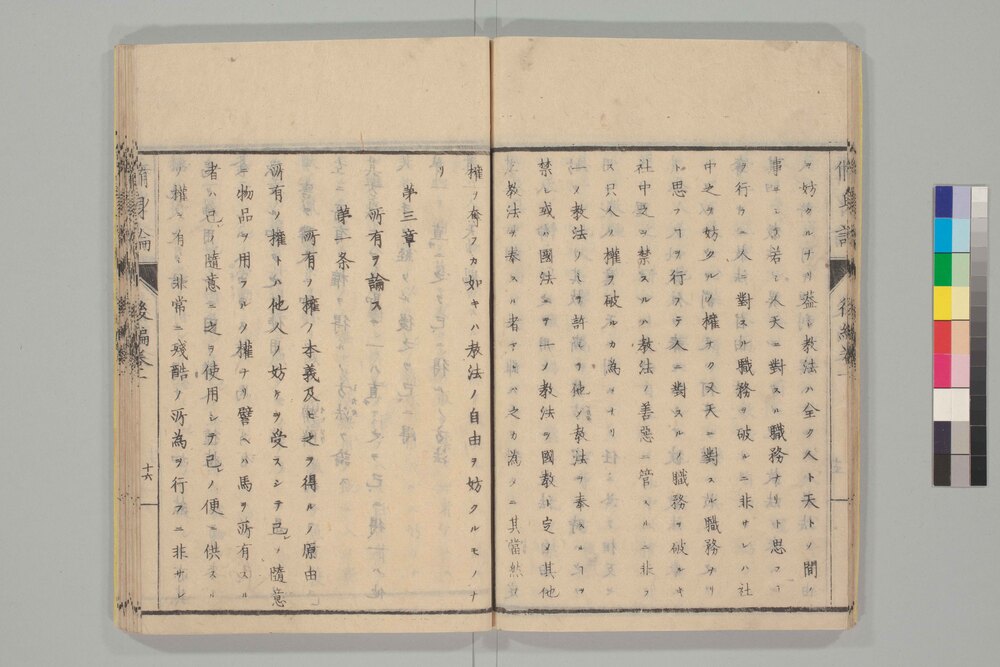 ヲ妨クルナリ蓋シ教法ハ全ク人ト天トノ間ノ
事ニシテ若シ人天ニ對スル職務ナリト思フ
ヲ行フ人ニ對スル職務ヲ破ルニ非サレハ社
中之ヲ妨クルノ權ナク又天ニ對スル職務ナリ
ト思フヿヲ行ヒテ人ニ對スルノ職務ヲ破ルキ
社中之ヲ禁スルハ教法ノ善惡ニ管スルニ非ラ
ス只人ノ權ヲ破ルカ為メナリ
一ノ教法ノミヲ許シテ他ノ教法ヲ奉スルヿヲ
禁シ或ハ國法ニテ一ノ教法ヲ國教ト定メ其他
ノ教法ヲ奉スル者ヤトハ之カ為メニ其當然ノ
權ヲ奪フカ如キハ教法ノ自由ヲ妨クルモノナ
リ
第三章
所有ヲ論ス
第一条
所有ノ權ノ本義及ヒ之ヲ得ルノ原由
所有ノ權トハ他人ノ妨ケヲ受スシテ己レノ隨意
ニ物品ヲ用フルノ權ナリ譬ヘハ馬ヲ所有スル
者ハ己レノ隨意ニ之ヲ使用シテ己レノ便ニ供スル
ノ權ヲ有シ非常ニ殘酷ノ所為ヲ行フニ非サレ
脩身論
後編卷一
十六